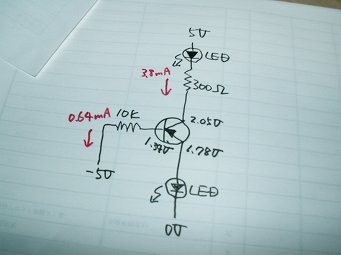 5V
LED
3.8mA
300Ω
0.64mA
10K
2.05V
1.37V
1.78V
-5V
LED
0V